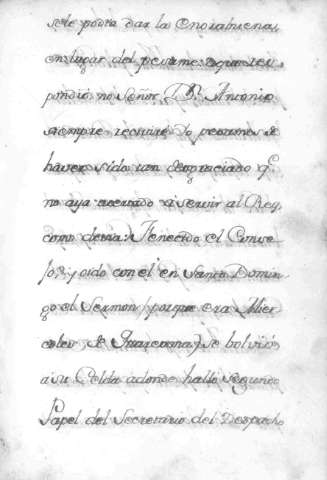 sele podia dar la Enorabuena,
en lugar del pesame: a que res-
pondió no Señor D.n Antonio
siempre recivire Yo pesames de
haver sido tan desgraciado q.e
no aya acertado a servir al Rey,
como devia. Fenecido el Conse-
jo, y oido con el en Santo Domin-
go el Sermon (porque era Mier-
coles de Quaresma) se bolvió
a su Celda adonde halló segundo
Papel del Secretario del Despacho